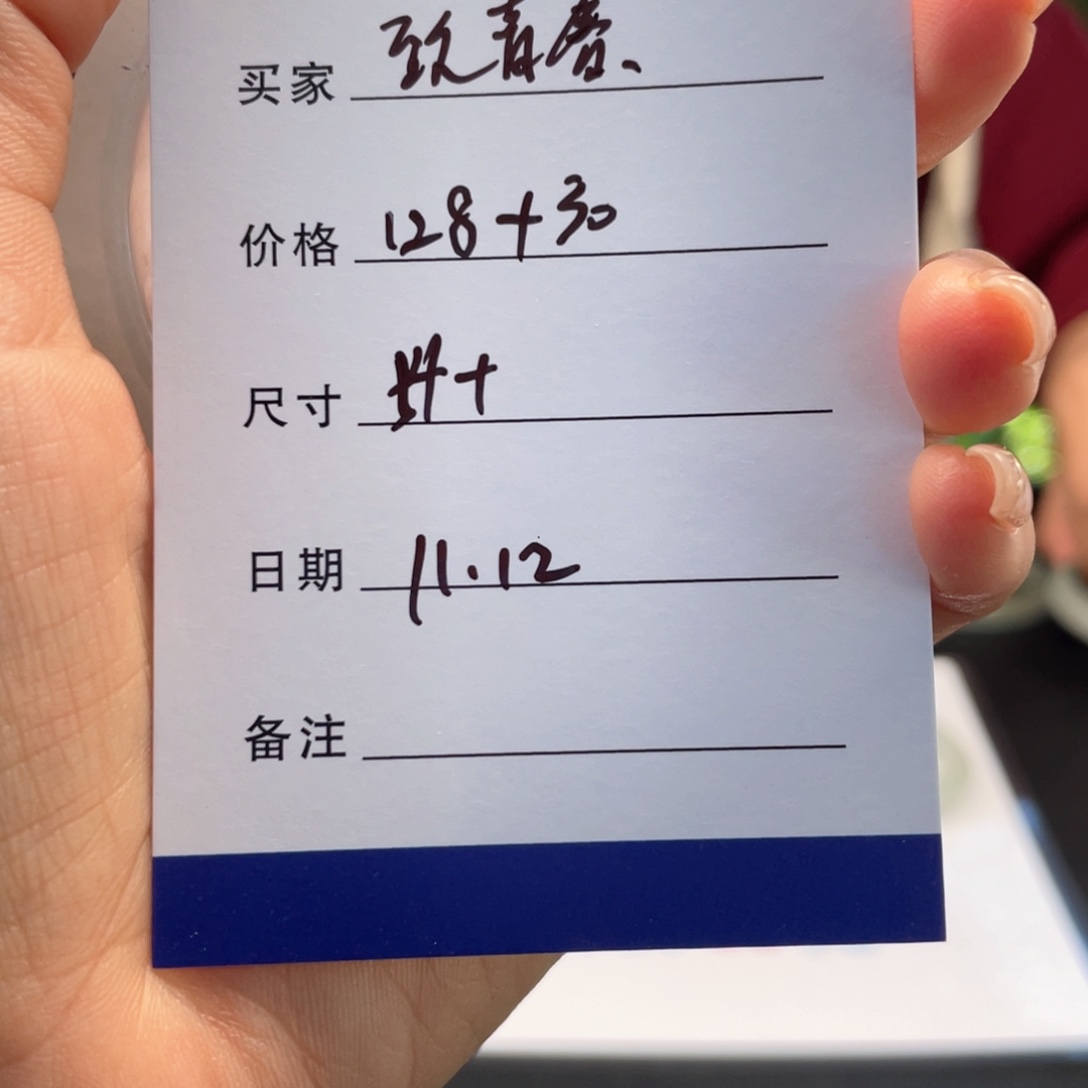 买家 致青春、
价格 128+30
尺寸 54+
日期 11.12
备注